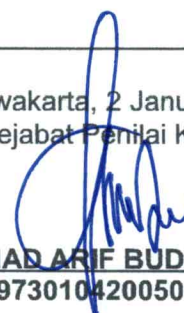 wakarta, 2 Janu
ejabat Penilai K
AD ARIF BUD
973010420050